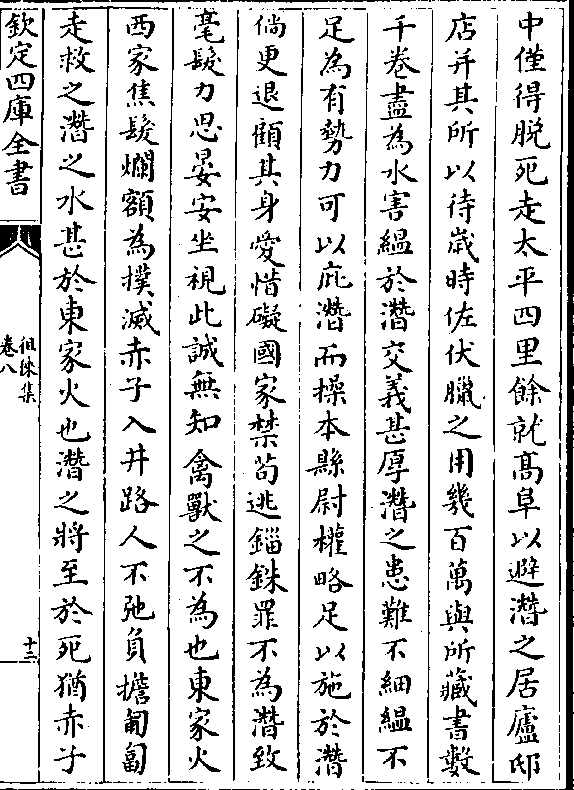 中僅得脫死走太平四里餘就髙阜以避潛之居廬邸
店并其所以待歳時佐伏臘之用幾百萬與所藏書數
千卷盡為水害緼於潛交義甚厚潛之患難不細緼不
足為有勢力可以庇潛而操本縣尉權略足以施於潛
倘更退顧其身愛惜礙國家禁茍逃錙銖罪不為潛致
毫髮力思晏安坐視此誠無知禽獸之不為也東家火
西家焦髮爛額為撲滅赤子入井路人不弛負擔匍匐
走救之潛之水甚於東家火也潛之將至於死猶赤子
欽定四庫全書
徂徠集
卷八
十三